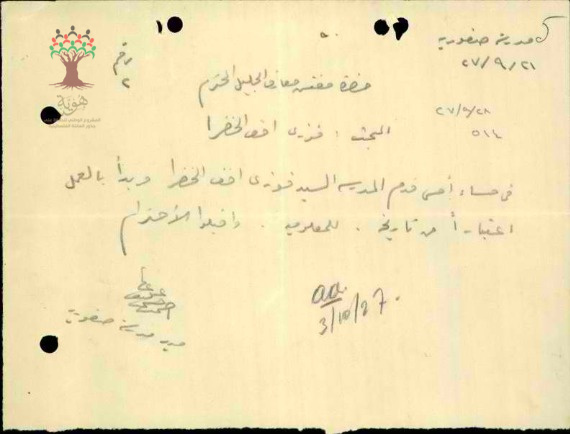 مدرسة صفورية
٢٧/٩/٢١
رقم
٢
حضرة مفتش معارف الجليل المحترم
٢٧/٩/٢٨
٥١٤
البحث : فوزي افـ الخضرا
في مساء أمس قدم المدرسة السيد فوزي افـ الخضرا وبدأ بالعمل
اعتباراً من تاريخه . للمعلومية . واقبلوا الاحترام
مدير مدرسة صفورية
3/10/27.
هوية